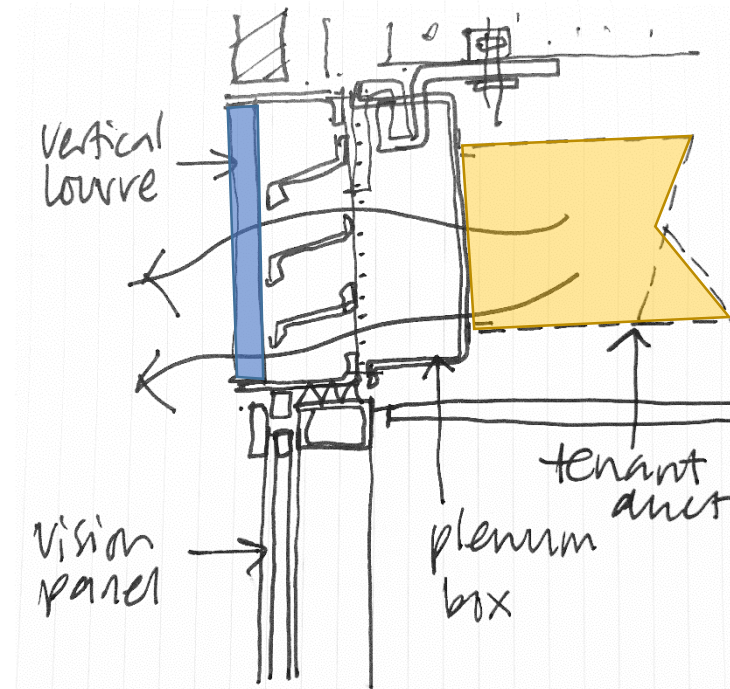 vertical
louvre
tenant
duct
vision
panel
plenum
box